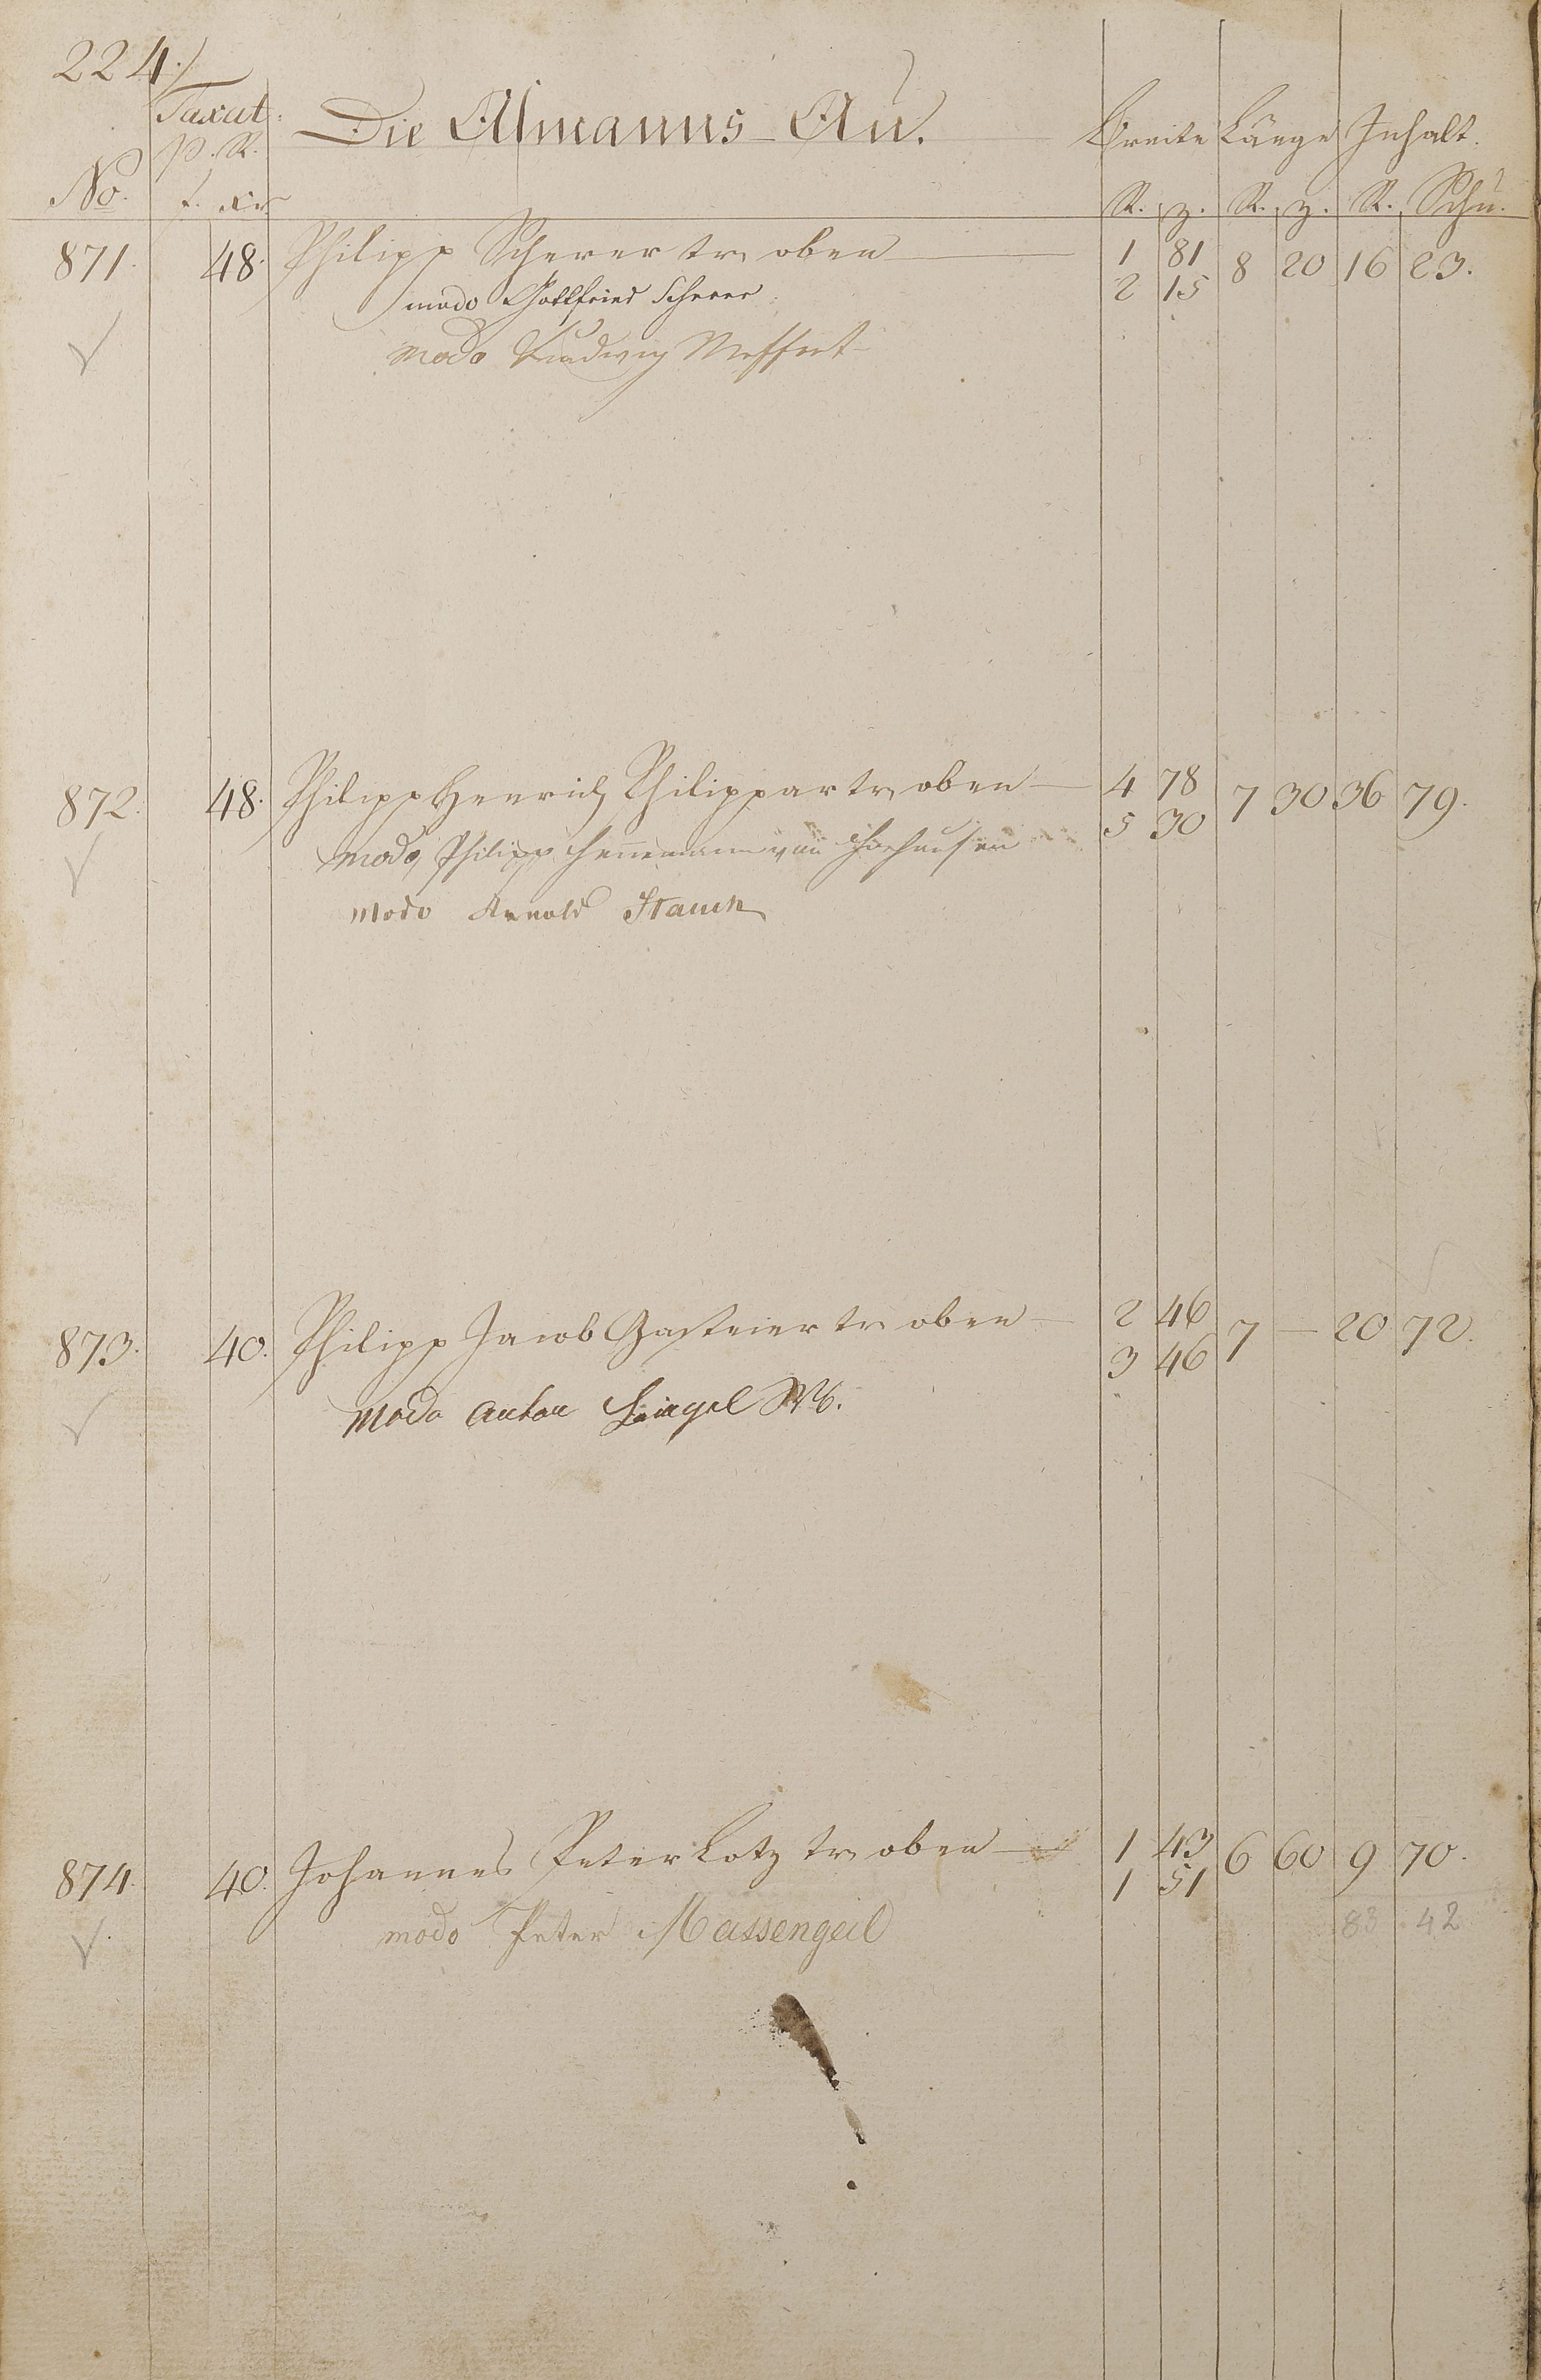 224.)
Taxat: Die Almanns-Au. Breite Länge Inhalt.
p. R.
No. f. xr R. z. R. z. R. Schu.
871. 48. Philipp Scherer tr oben 1 81 8 20 16 23.
2 15
modo Gottfried Scherer
modo Ludwig Meffert
872. 48. Philipp Henrich Philippar tr oben 4 78 7 30 36 79.
5 30
modo Philipp Hennemann von
modo Arnold Stauch
873. 40. Philipp Jacob Gasteier tr oben 2 46 7 — 20 72.
3 46
modo Anton
874. 40. Johannes Peter Lotz tr oben 1 43 6 60 9 70.
1 51
modo Peter Massengeil 83 42